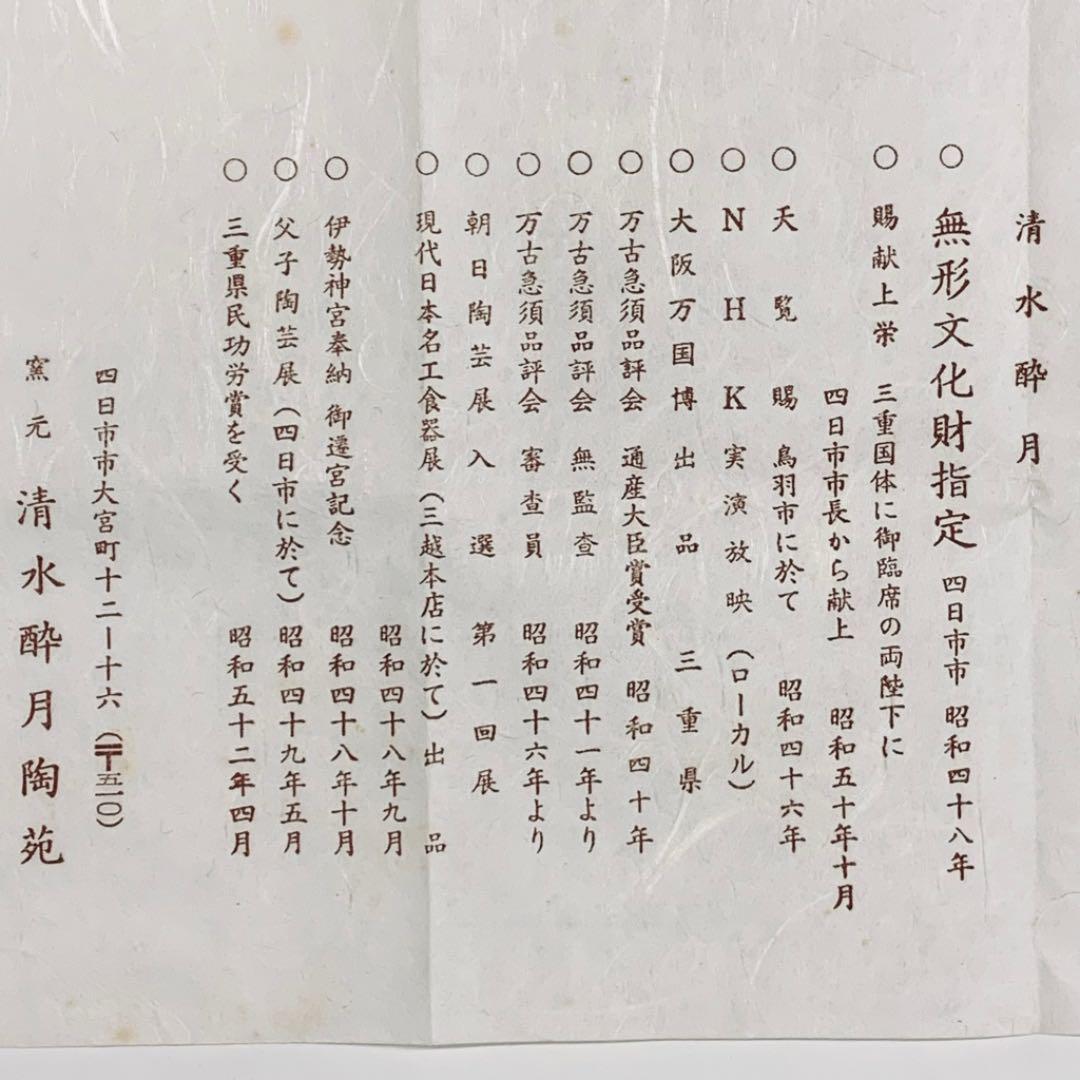 清水酔月
○ 無形文化財指定 四日市市 昭和四十八年
○ 賜献上栄 三重国体に御臨席の両陛下に
四日市市長から献上 昭和五十年十月
○ 天覧賜 鳥羽市に於て 昭和四十六年
○ NHK実演放映(ローカル)
○ 大阪万国博出品 三重県
○ 万古急須品評会 通産大臣賞受賞 昭和四十年
○ 万古急須品評会 無監査 昭和四十一年より
○ 万古急須品評会 審査員 昭和四十六年より
○ 朝日陶芸展入選 第一回展
○ 現代日本名工食器展(三越本店に於て)出品
昭和四十八年九月
○ 伊勢神宮奉納 御遷宮記念 昭和四十八年十月
○ 父子陶芸展(四日市に於て)昭和四十九年五月
○ 三重県民功労賞を受く 昭和五十二年四月
四日市市大宮町十二ー十六(〒五一〇)
窯元 清水酔月陶苑